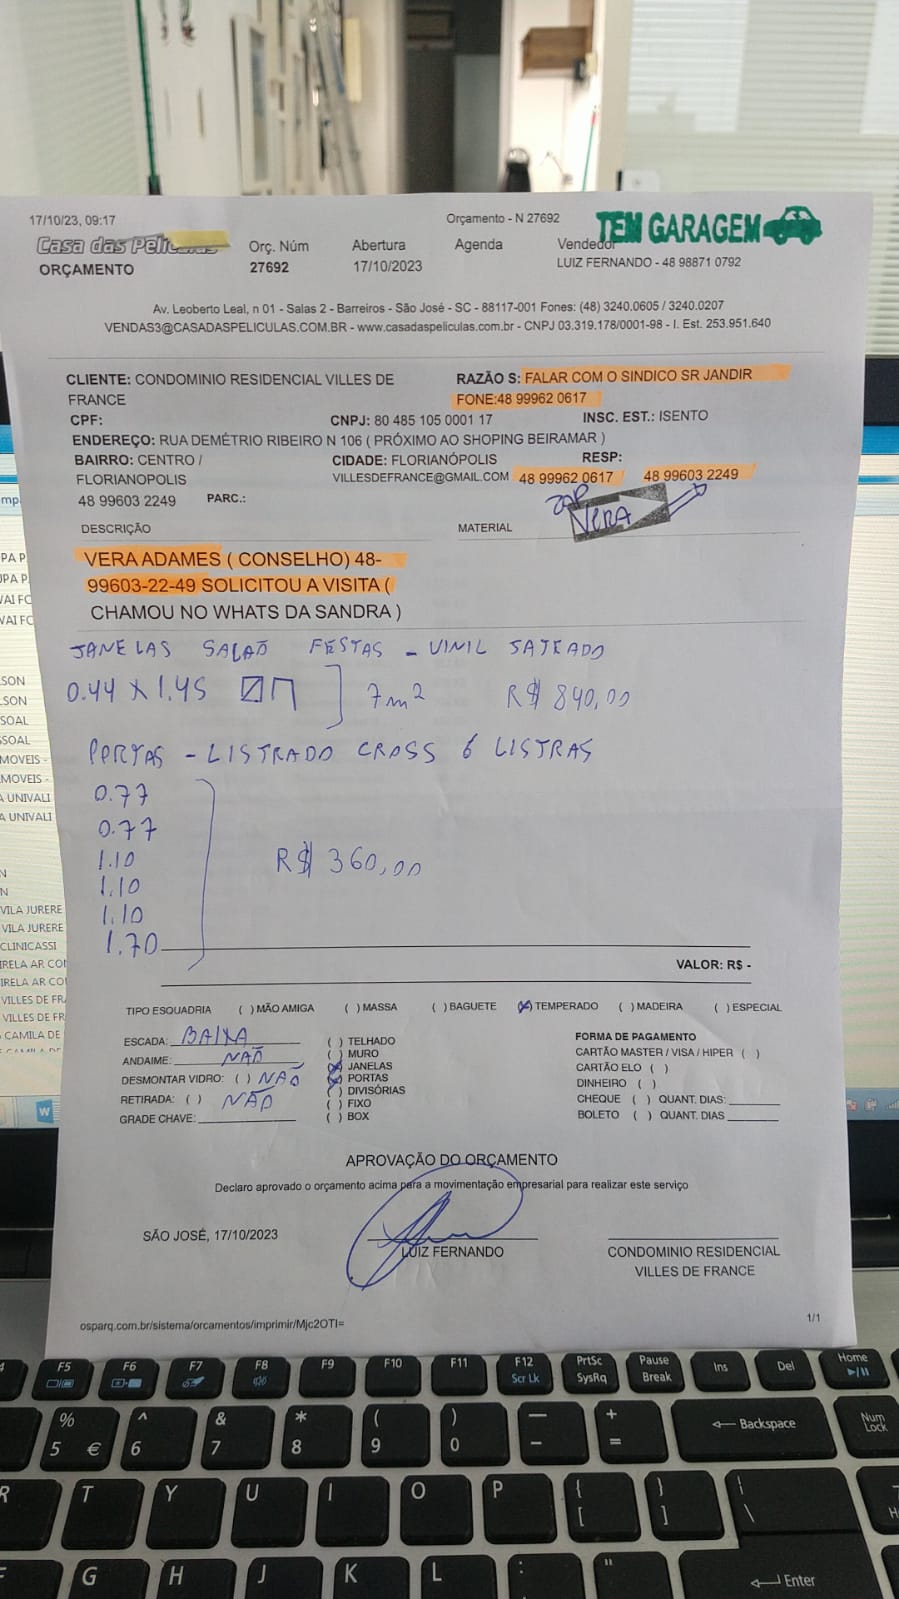 17/10/23, 09:17
Orçamento - N 27692
TEM GARAGEM
Casa das Películas
ORÇAMENTO
Orç. Núm
27692
Abertura
17/10/2023
Agenda
Vendedor
LUIZ FERNANDO - 48 98871 0792
Av. Leoberto Leal, n 01 - Salas 2 - Barreiros - São José - SC - 88117-001 Fones: (48) 3240.0605 / 3240.0207
VENDAS3@CASADASPELICULAS.COM.BR - www.casadaspeliculas.com.br - CNPJ 03.319.178/0001-98 - I. Est. 253.951.640
CLIENTE: CONDOMINIO RESIDENCIAL VILLES DE
FRANCE
RAZÃO S: FALAR COM O SINDICO SR JANDIR
FONE:48 99962 0617
CPF:
CNPJ: 80 485 105 0001 17
INSC. EST.: ISENTO
ENDEREÇO: RUA DEMÉTRIO RIBEIRO N 106 ( PRÓXIMO AO SHOPING BEIRAMAR )
BAIRRO: CENTRO /
FLORIANOPOLIS
CIDADE: FLORIANÓPOLIS
RESP:
VILLESDEFRANCE@GMAIL.COM 48 99962 0617 48 99603 2249
48 99603 2249
PARC.:
ZAP
VERA
DESCRIÇÃO
MATERIAL
VERA ADAMES ( CONSELHO) 48-
99603-22-49 SOLICITOU A VISITA (
CHAMOU NO WHATS DA SANDRA )
JANELAS SALAÕ FESTAS - VINIL JATEADO
0.44 x 1.45
7m²
R$ 840,00
PORTAS - LISTRADO CROSS 6 LISTRAS
0.77
0.77
1.10
R$ 360,00
1.10
1.10
1.70
VALOR: R$ -
TIPO ESQUADRIA ( ) MÃO AMIGA ( ) MASSA ( ) BAGUETE (X) TEMPERADO ( ) MADEIRA ( ) ESPECIAL
ESCADA: BAIXA
ANDAIME: NAÕ
DESMONTAR VIDRO: ( ) NAÕ
RETIRADA: ( ) NÃO
GRADE CHAVE:
( ) TELHADO
( ) MURO
(X) JANELAS
(X) PORTAS
( ) DIVISÓRIAS
( ) FIXO
( ) BOX
FORMA DE PAGAMENTO
CARTÃO MASTER / VISA / HIPER ( )
CARTÃO ELO ( )
DINHEIRO ( )
CHEQUE ( ) QUANT. DIAS:
BOLETO ( ) QUANT. DIAS
APROVAÇÃO DO ORÇAMENTO
Declaro aprovado o orçamento acima para a movimentação empresarial para realizar este serviço
SÃO JOSÉ, 17/10/2023
LUIZ FERNANDO
CONDOMINIO RESIDENCIAL
VILLES DE FRANCE
osparq.com.br/sistema/orcamentos/imprimir/Mjc2OTI=
1/1
SON
LSON
SOAL
SSOAL
MOVEIS -
MOVEIS -
A UNIVALI
A UNIVALI
VILA JURERE
VILA JURERE
CLINICASSI
VILLES DE FRA
VILLES DE FR
CAMILA DE
W
F5 F6 F7 F8 F9 F10 F11 F12 PrtSc Pause Ins Del Home
Scr Lk SysRq Break
% ^ & * ( ) — + Backspace Num
5 € 6 7 8 9 0 - = Lock
R T Y U I O P { } |
[ ] \
G H J K L : "
Enter